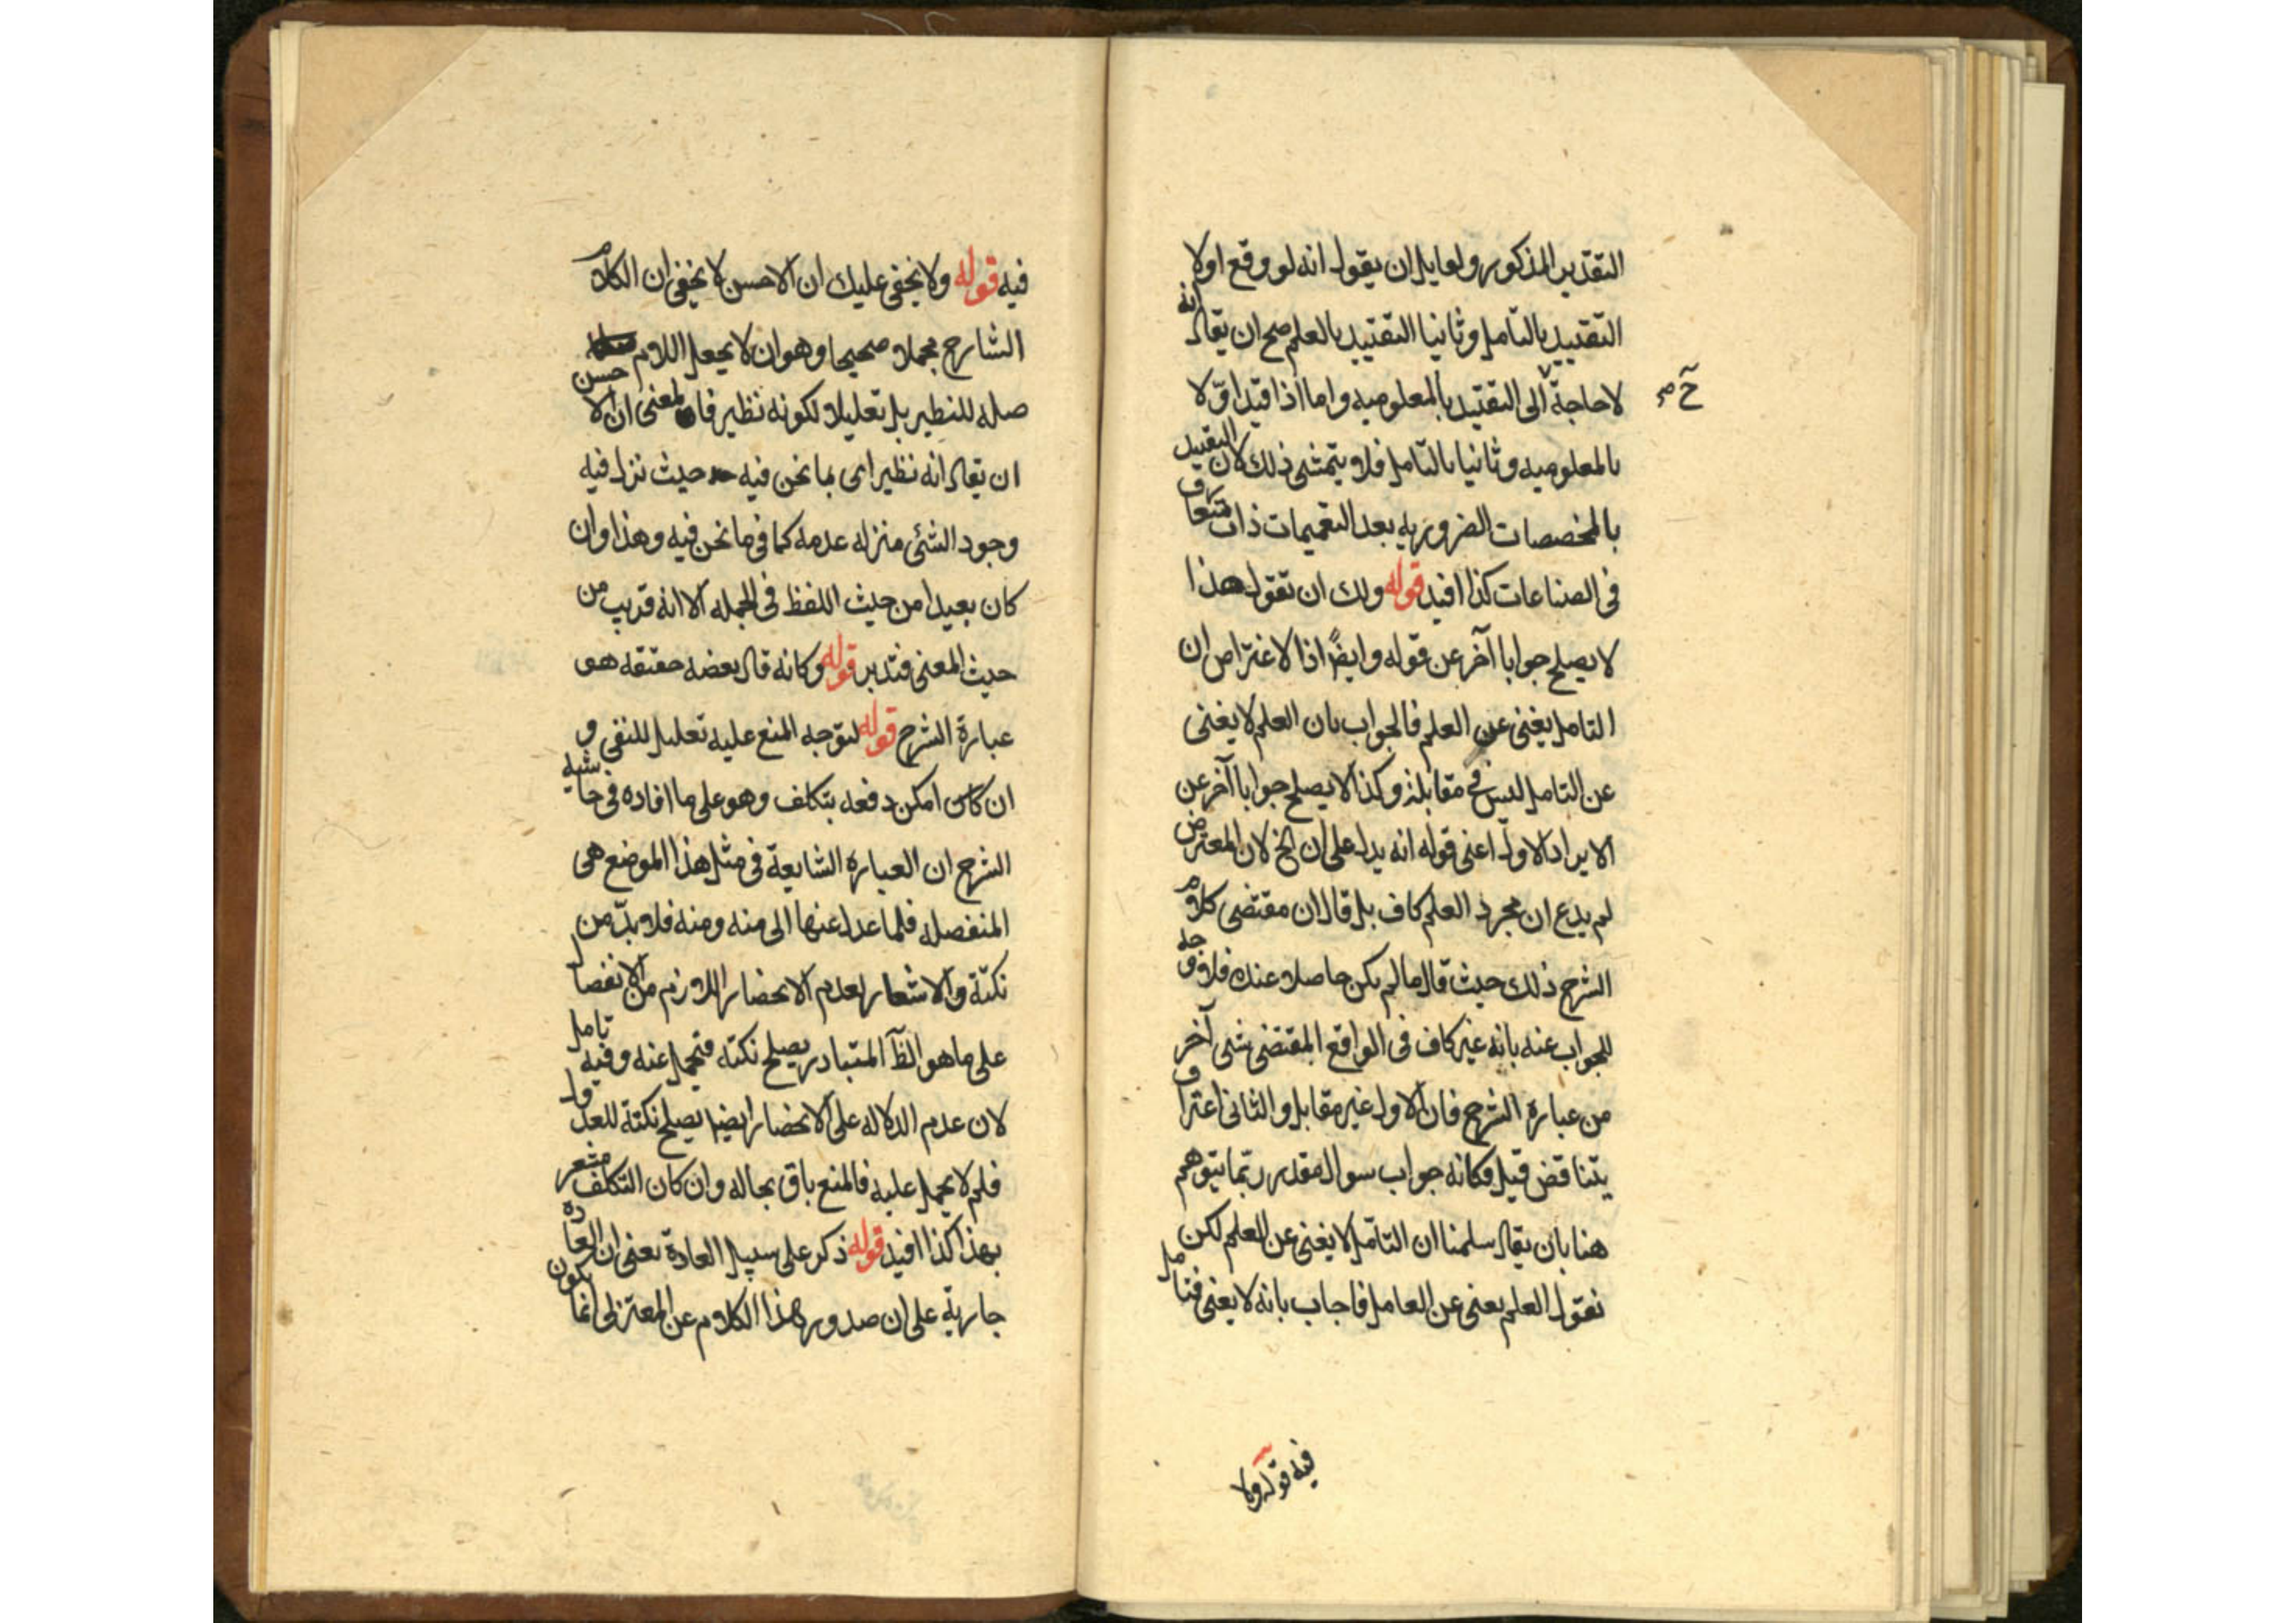 التقدير المذكور ولقايل ان يقول انه لو وقع اولا
التقييد بالتامل وثانيا التقييد بالعلم صح ان يقال انه
لا حاجة ح الى التقييد بالمعلوميه واما اذا قيد اولا
ح صح
بالمعلوميه وثانيا بالتامل فلا يتمشى ذلك لان التقييد
بالمخصصات الضروريه بعد التعميمات ذات متعارف
فى الصناعات كذا افيد قوله ولك ان تقول هذا
لا يصلح جوابا آخر عن قوله وايضا اذا الاعتراض ان
التامل يغنى عن العلم فالجواب بان العلم لا يغنى
عن التامل ليس فى مقابلته وكذا لا يصلح جوابا آخر عن
الايراد الاول اعنى قوله انه يدل على ان الخ لان المعترض
لم يدع ان مجرد العلم كاف بل قال ان مقتضى كلام
الشرح ذلك حيث قال ما لم يكن حاصلا عنده فلا وجه
للجواب عنه بانه غير كاف فى الواقع المقتضى شى آخر
من عبارة الشرح فان الاول غير مقابل والثانى اعتراف
يتناقض قيل فكانه جواب سوال مقدر ربما يتوهم
هنا بان يقال سلمنا ان التامل لا يغنى عن العلم لكن
نقول العلم يعنى عن العامل فاجاب بانه لا يعنى فتامل
فيه قوله ولا
فيه قوله ولا يخفى عليك ان الاحسن لا يخفى ان الكلام
الشارح مجملا صحيحا وهو ان لا يجعل اللام
صله للنظير بل تعليلا لكونه نظير فان المعنى ان الاحسن
ان يقال انه نظير اى بما نحن فيه حيث نزل فيه
وجود الشئ منزله عدمه كما فى ما نحن فيه وهذا وان
كان بعيدا من حيث اللفظ فى الجمله الا انه قريب من
حيث المعنى فتدبر قوله وكانه قال بعضه حقيقه هو
عبارة الشرح قوله لتوجه المنع عليه تعليل للنفى و
ان كان امكن دفعه بتكلف وهو على ما افاده فى حاشيه
الشرح ان العباره الشايعة فى مثل هذا الموضع هى
المنفصله فلما عدل عنها الى منه ومنه فلا بد من
نكتة والاشعار لعدم الانحصار اللازم من الانفصال
على ما هو الظ المتبادر يصلح نكته فتحمل عنه وفيه تامل
لان عدم الدلاله على الانحصار ايضا يصلح نكتة للعدول
فلم لا يحمل عليه فالمنع باق بحاله وان كان التكلف مشعر
بهذا كذا افيد قوله ذكر على سبيل العادة يعنى ان العاده
جارية على ان صدور هذا الكلام عن المعتزلى انما يكون